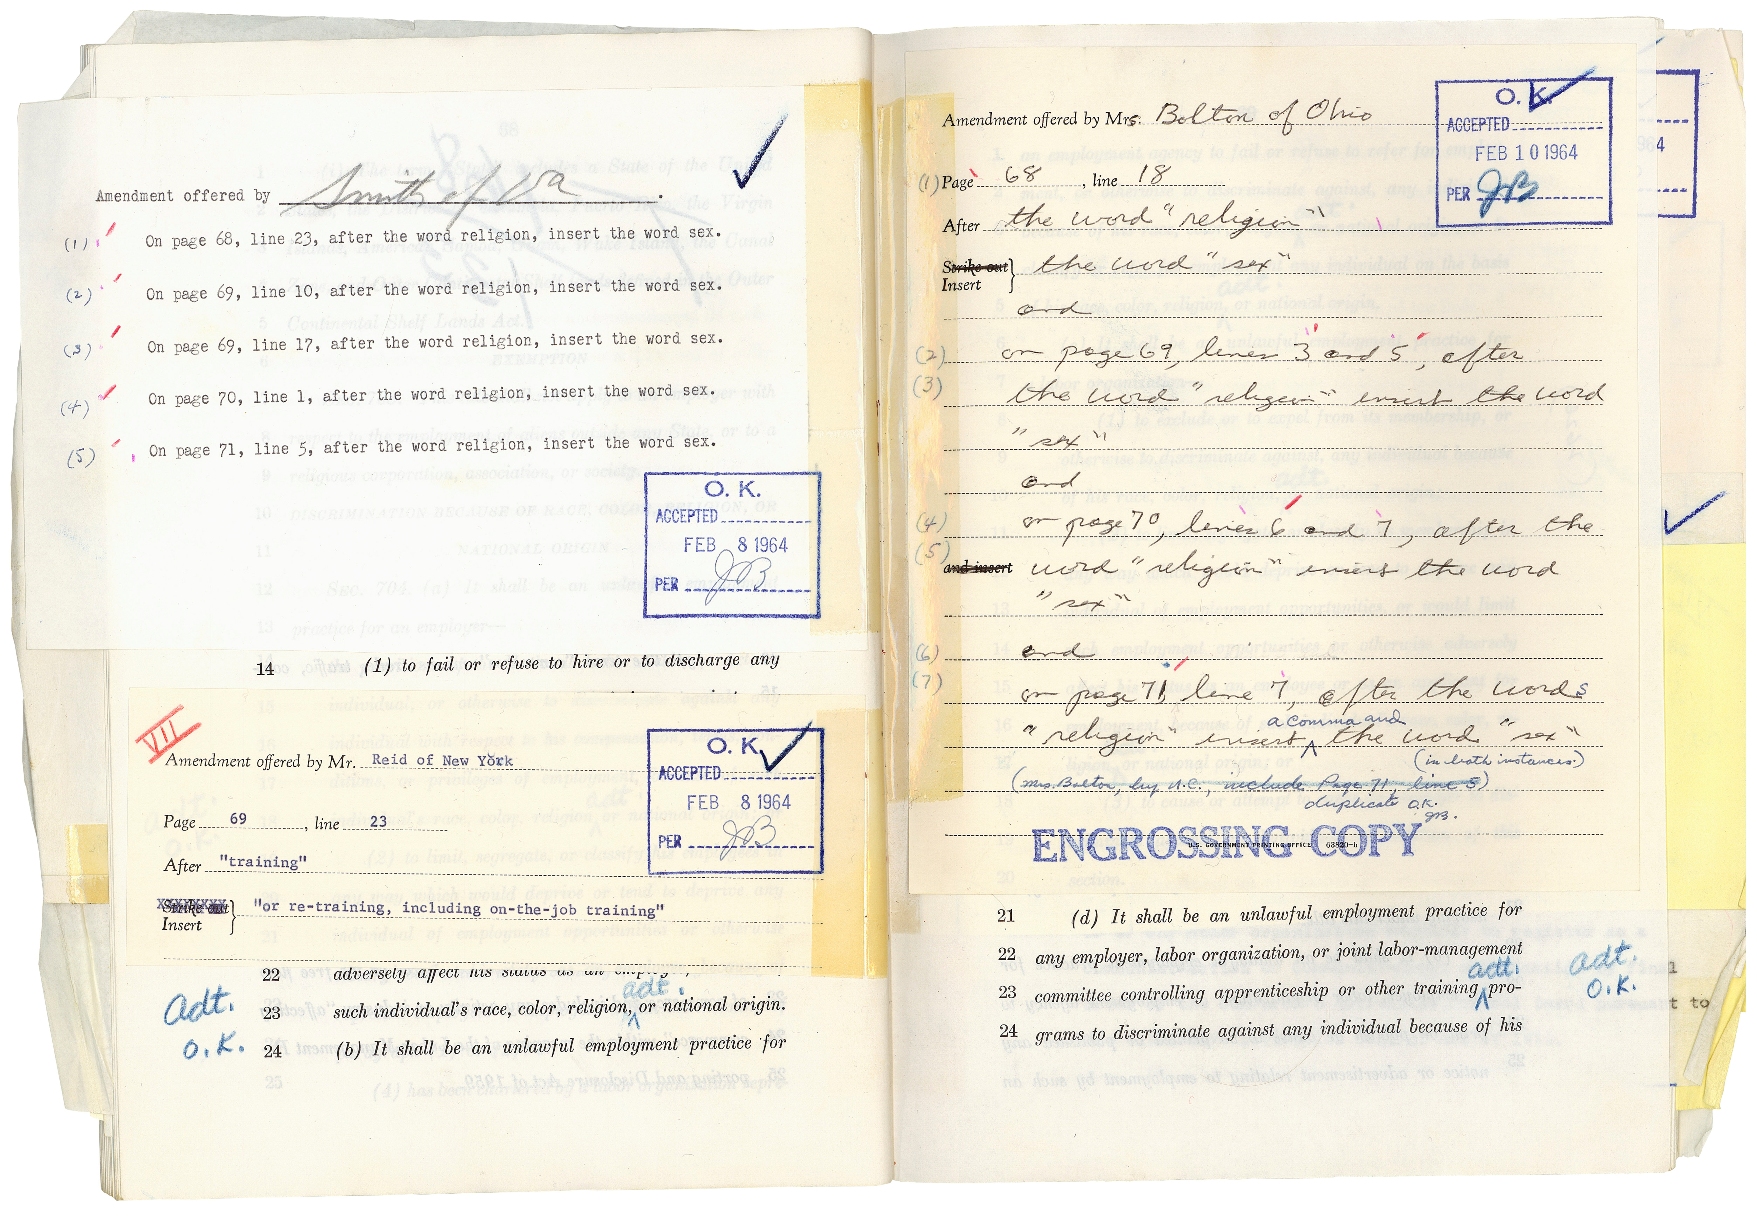 Amendment offered by Smith of Va.
(1) On page 68, line 23, after the word religion, insert the word sex.
(2) On page 69, line 10, after the word religion, insert the word sex.
(3) On page 69, line 17, after the word religion, insert the word sex.
(4) On page 70, line 1, after the word religion, insert the word sex.
(5) On page 71, line 5, after the word religion, insert the word sex.
O. K.
ACCEPTED
FEB 8 1964
PER JB
14 (1) to fail or refuse to hire or to discharge any
VII
Amendment offered by Mr. Reid of New York
Page 69, line 23
After "training"
Strike out
Insert } "or re-training, including on-the-job training"
O. K.
ACCEPTED
FEB 8 1964
PER JB
22 adversely affect his status as an
adt.
Adt. 23 such individual's race, color, religion, or national origin.
O.K. 24 (b) It shall be an unlawful employment practice for
Amendment offered by Mrs. Bolton of Ohio
(1) Page 68, line 18
After the word "religion"
Strike out
Insert } the word "sex"
and
(2) on page 69, lines 3 and 5, after
(3) the word "religion" insert the word
"sex"
and
(4) on page 70, lines 6 and 7, after the
(5) and insert word "religion" insert the word
"sex"
(6) and
(7) on page 71, line 7, after the words
a comma and
"religion" insert ^ the word "sex"
(in both instances)
(Mrs. Bolton, by U.C., include Page 71, line 5)
duplicate O.K.
JB.
ENGROSSING COPY
U.S. GOVERNMENT PRINTING OFFICE 63820-b
O. K.
ACCEPTED
FEB 10 1964
PER JB
21 (d) It shall be an unlawful employment practice for
22 any employer, labor organization, or joint labor-management
adt.
23 committee controlling apprenticeship or other training pro-
24 grams to discriminate against any individual because of his
adt.
O.K.